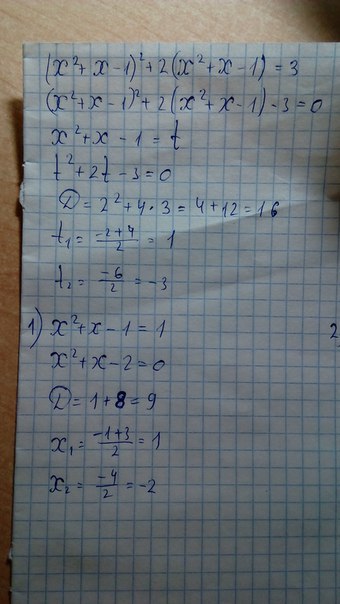 (x²+x-1)²+2(x²+x-1)=3
(x²+x-1)²+2(x²+x-1)-3=0
x²+x-1=t
t²+2t-3=0
D=2²+4·3=4+12=16
t₁=(-2+4)/2=1
t₂=-6/2=-3
1) x²+x-1=1
2
x²+x-2=0
D=1+8=9
x₁=(-1+3)/2=1
x₂=-4/2=-2